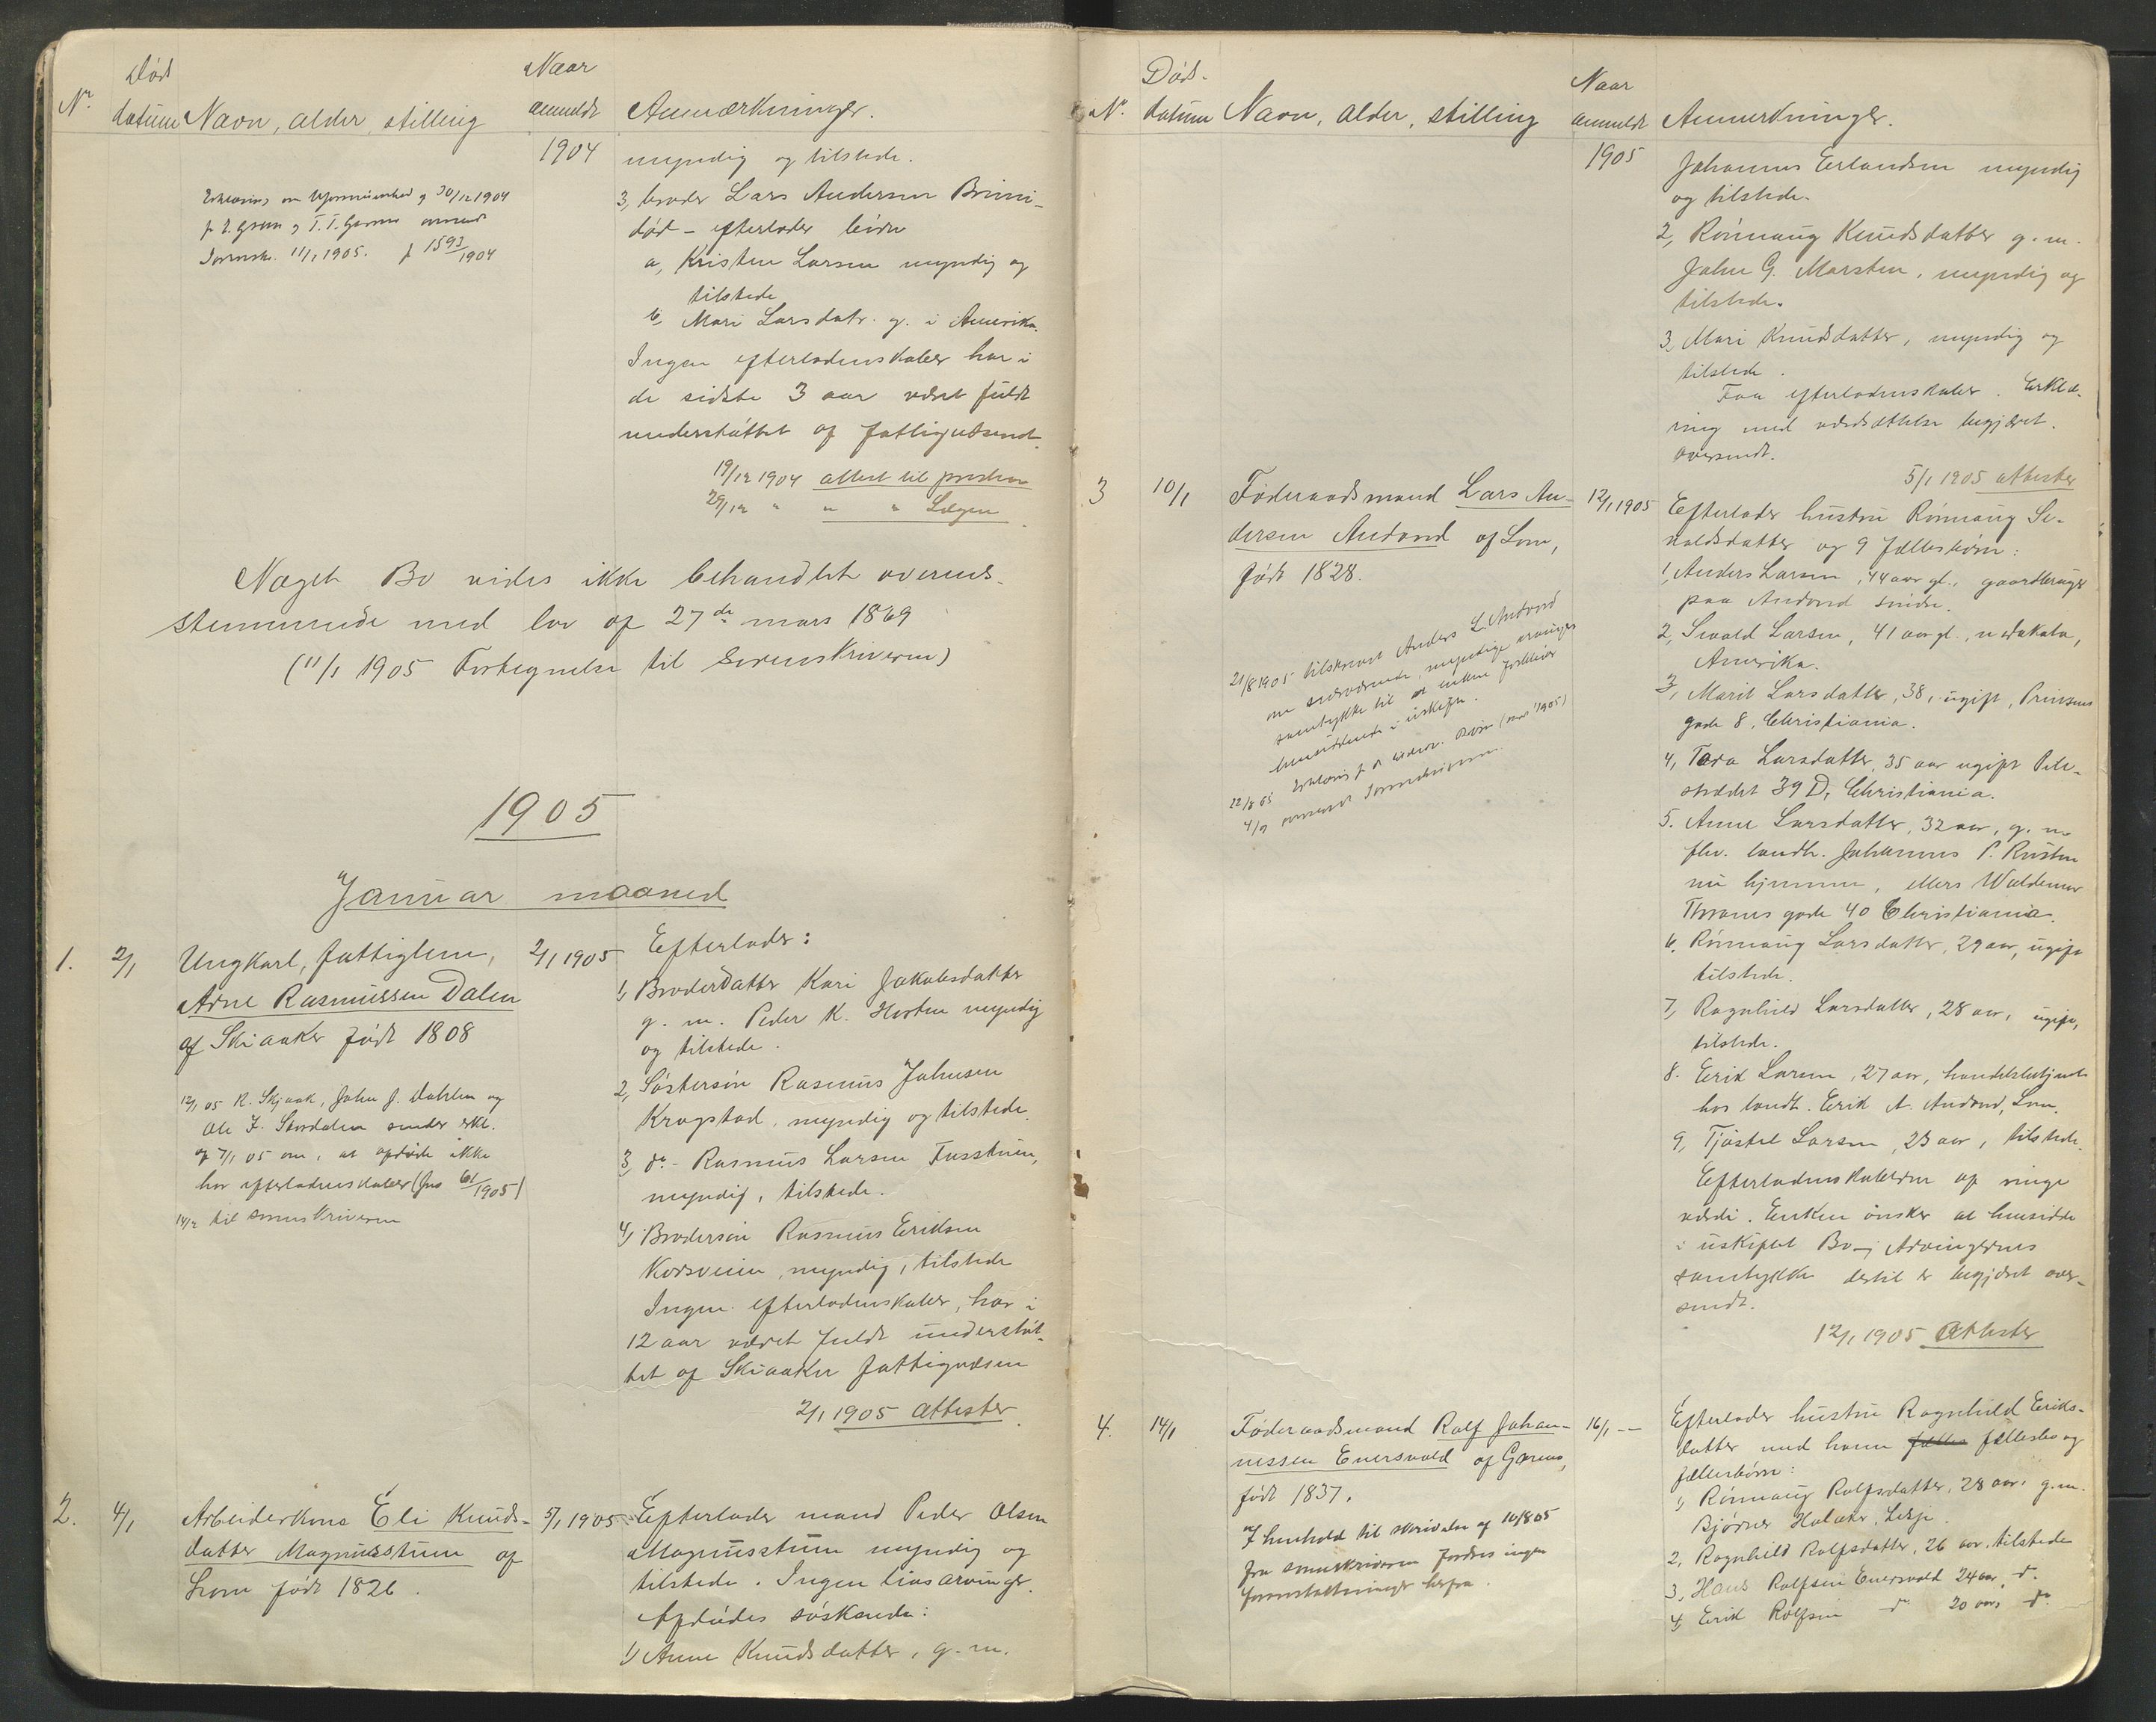 Nr.
Død
datum
Navn, alder, stilling
Naar
anmeldt
Anmærkninger.
1904
myndig og tilstede.
3, broder Lars Andersen Brimi-
død - efterlader børn
a, Kristen Larsen myndig og
tilstede
b, Mari Larsdatr. g. i Amerika.
Ingen efterladenskaber har i
de sidste 3 aar været fuldt
understøttet af fattigvæsenet.
19/12 1904 attest til presten
29/12 " " " Lægen
Erklæring om Uformuenhed af 30/12 1904
T. T. oversendt
Sorensk. 11/1 1905. 1593/1904
Noget Bo vides ikke behandlet overens-
stemmende med lov af 27de mars 1869
(11/1 1905 Fortegnelse til Sorenskriveren)
1905
Januar maaned
1.
2/1
Ungkarl, fattiglem,
Arne Rasmussen Dalen
af Skiaaker født 1808
12/1 05 R. Skjaak, John J. Dahlen og
Ole J. Stordalen sender erkl.
af 7/1 05 om, at afdøde ikke
har efterladenskaber (Jno 61/1905)
14/2 til sorenskriveren
2/1 1905
Efterlader:
1, Broderdatter Kari Jakobsdatter
g. m. Peder K. myndig
og tilstede.
2, Søstersøn Rasmus Johnsen
Krogstad, myndig og tilstede.
3, do- Rasmus Larsen
myndig, tilstede.
4, Brodersøn Rasmus Eriksen
Korsveien, myndig, tilstede
Ingen efterladenskaber, har i
12 aar været fuldt understøt-
tet af Skiaaker fattigvæsen
2/1 1905 attester
2.
4/1
Arbeiderkone Eli Knuds-
datter Magnusstuen af
Lom født 1826.
5/1 1905
Efterlader mand Peder Olsen
Magnusstuen myndig og
tilstede. Ingen livsarvinger.
Afdødes søskende:
1, Anne Knudsdatter, g. m.
Nr.
Død-
datum
Navn, alder, stilling
Naar
anmeldt
Anmerkninger.
1905
Johannes Erlandsen myndig
og tilstede.
2, Rønnaug Knudsdatter g. m.
John G. Marsten, myndig og
tilstede.
3, Mari Knudsdatter, myndig og
tilstede.
Faa efterladenskaber. Erklæ-
ring med værdsættelse begjæret
oversendt.
5/1 1905 attester
3
10/1
Føderaadsmand Lars An-
dersen Andvord af Lom,
født 1828.
21/8 1905 tilskrevet Anders L. Andvord
om nærværende, myndige arvingers
samtykke til at enken forbliver
hensiddende i uskifte.
22/8 05 Erklæring
4/9 oversendt Sorenskriveren.
12/1 1905
Efterlader hustru Rønnaug Si-
valdsdatter og 9 fællesbørn:
1, Anders Larsen, 44 aar gl., gaardbruger
paa Andvord søndre.
2, Sivald Larsen, 41 aar gl., n. Dakota,
Amerika.
3, Marit Larsdatter, 38, ugift, Prinsens
gade 8, Christiania.
4, Tora Larsdatter, 35 aar ugift Pile-
strædet 39 D, Christiania.
5. Anne Larsdatter, 32 aar, g. m.
fhv. landh. Johannes P. Rusten
nu hjemme, ellers Waldemar
Thranes gade 40 Christiania.
6. Rønnaug Larsdatter, 29 aar, ugift
tilstede.
7, Ragnhild Larsdatter, 28 aar, ugift,
tilstede.
8. Erik Larsen, 27 aar, handelsbetjent
hos landh. Erik A. Andvord, Lom.
9, Tjøstel Larsen, 23 aar, tilstede.
Efterladenskaberne af ringe
værdi. Enken ønsker at hensidde
i uskiftet Bo - Arvingernes
samtykke dertil er begjæret over-
sendt.
12/1 1905 Attester
4.
14/1
Føderaadsmand Rolf Johan-
nessen Enersvold af Garmo,
født 1837.
I henhold til skrivelse af 10/8 05
fra sorenskriveren fordres ingen
foranstaltninger herfra.
16/1 --
Efterlader hustru Ragnhild Eriks-
datter med hvem fælles fællesbo og
fællesbørn:
1, Rønnaug Rolfsdatter, 28 aar, g.m.
Bjørner Lesje.
2, Ragnhild Rolfsdatter, 26 aar, tilstede
3, Hans Rolfsen Enersvold 24 aar, do
4, Erik Rolfsen do 20 aar, do